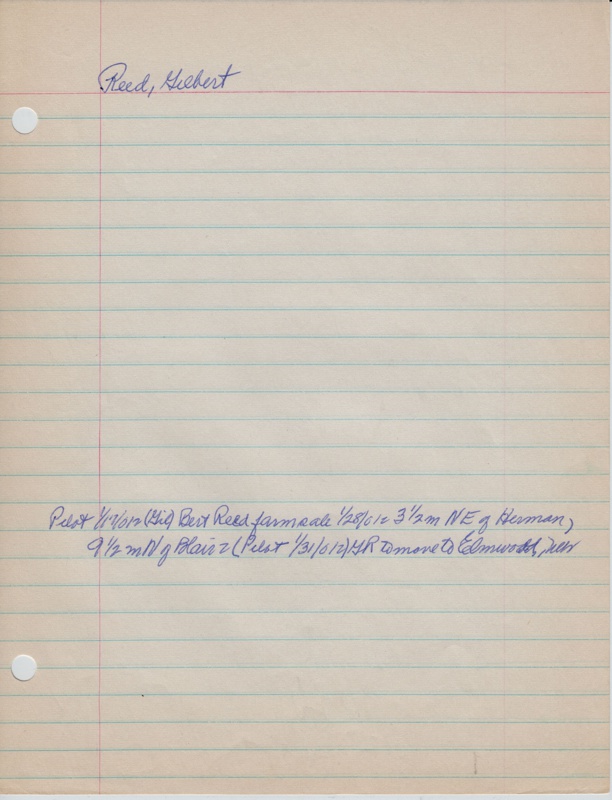 Reed, Gilbert
Pilot 1/17/012 (Gil) Bert Reed farm sale 1/28/012 3 1/2 m NE of Herman,
9 1/2 m N of Blair = (Pilot 1/31/012) GR to move to Elmwood, Nebr